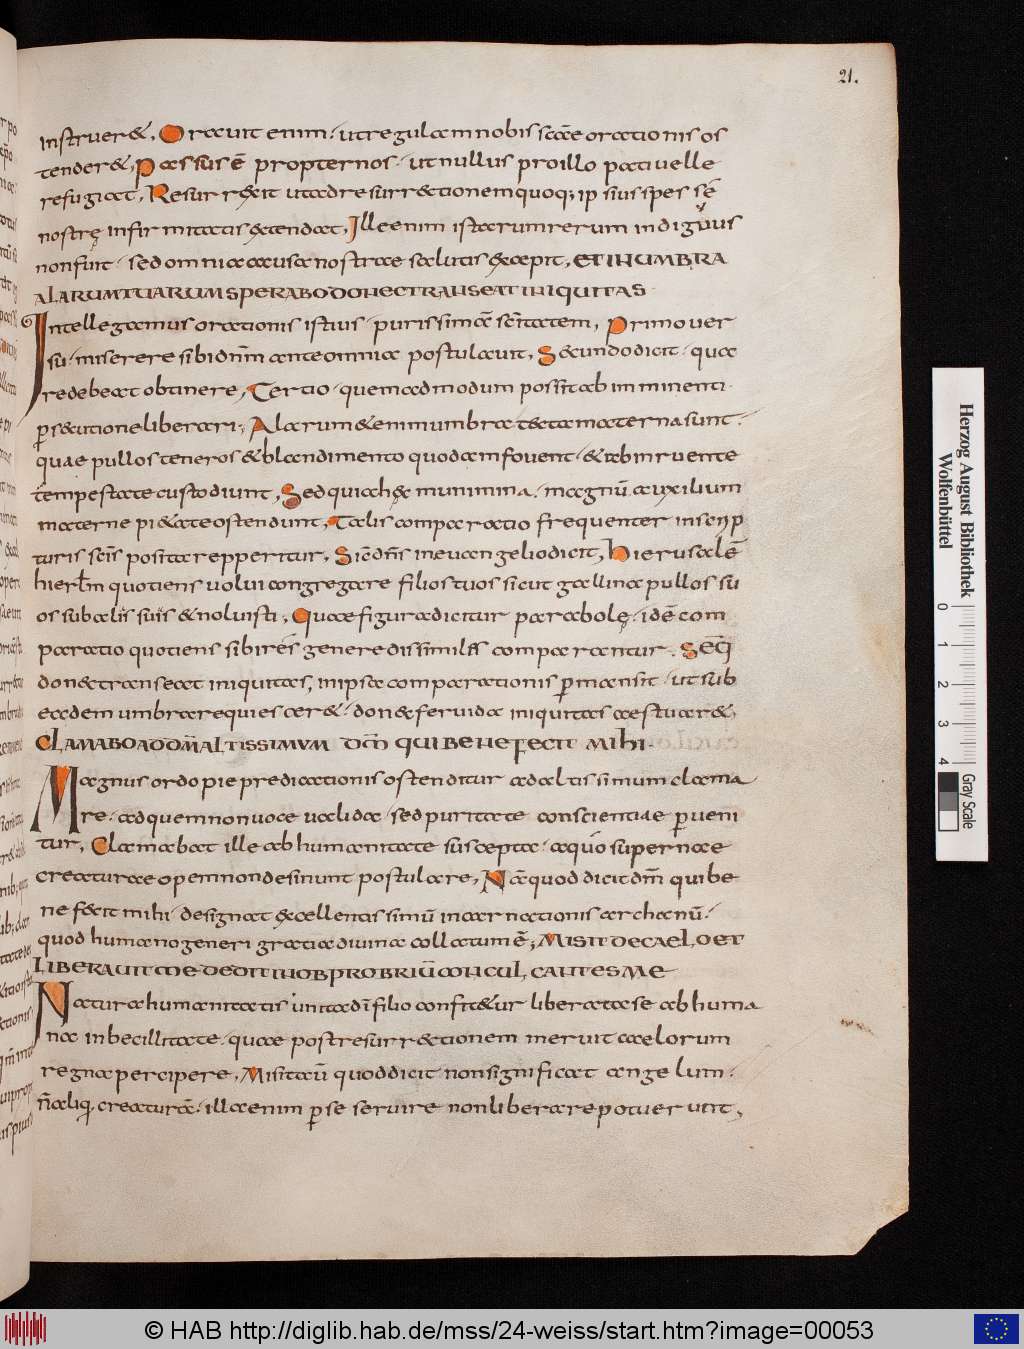 21.
instruer&. Orauit enim · utregulamnobis scāe orationis os
tender&. Passus ē propternos · ut nullus proillo pati uelle
refugiat. Resurrexit utadresurr&ctionem quoq; ipsius spes sē
nostrę infirmitatis extendat. Ille enim istarum rerum indiguus
nonfuit · sed omnia causa nostrae salutis excepit. ET IN UMBRA
ALARUM TUARUM SPERABO DONEC TRANSEAT INIQUITAS
Intellegamus orationis istius · purissimā scītatem. Primo uer
su · miserere sibi dnm̄ ante omnia postulauit. Secundo dicit · quae
re debeat obtinere. Tertio · quemadmodum possit ab imminenti
ꝑs&cutione liberari; Alarum &enim umbra t&cta materna sunt ·
quae pullos teneros &blandimento quodam fouent · &ab inruente
tempestate custodiunt. Sed quia hęc munimina · magnū auxilium
maternae pi&atis ostendunt. Talis comparatio frequenter in scrip
turis scīs posita repperitur. Sic & dn̄s in euangelio dicit. Hierusalē
hierlm̄ quotiens uolui congregare filios tuos sicut gallina pullos su
os sub aliis suis & noluisti. Quae figura dicitur parabolę · idē com
paratio quotiens sibi res genere dissimiles comparantur. Seq̄
donec transeat iniquitas, in ipsa comparationis ꝑmansit · ut sub
eadem umbra requiescer& · donec feruida iniquitas aestuar&.
CLAMABO AD DM̄ ALTISSIMUM DM̄ QUI BENEFECIT MIHI.
Magnus ordo pie predicationis ostenditur ad altissimum clama
re · ad quem non uoce ualida · sed puritate conscientiae ꝑueni
tur. Clamabat ille ab humanitate suscepta · a quo supernae
creaturae opem non desinunt postulare. Nā quod dicit dm̄ qui be
ne fecit mihi · designat excellentissimū incarnationis archanū ·
quod humano generi gratia diuina collatum ē; MISIT DE CAELO ET
LIBERAUIT ME DEDIT IN OBPROBRIŪ CONCULCANTES ME
Natura humanitatis unita dī filio confit&ur liberatā se ab huma
na inbecillitate · quae post resurr&ctionem meruit caelorum
regna percipere. Misit aū quod dicit non significat angelum ·
n̄ aliq̄ creaturā · illa enim ꝑ se seruire non liberare potuerunt.
Herzog August Bibliothek
Wolfenbüttel
0 1 2 3 4
Gray Scale
© HAB http://diglib.hab.de/mss/24-weiss/start.htm?image=00053